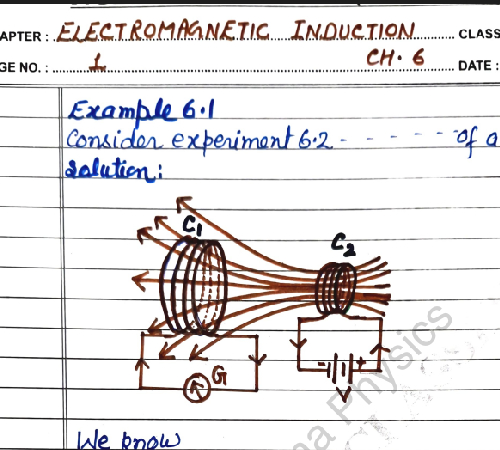 APTER : ELECTROMAGNETIC INDUCTION CLASS
GE NO. : 1 CH. 6 DATE :
Example 6.1
Consider experiment 6.2 - - - - - - of a
Solution:
C1
C2
G
- +
V
na Physics
We know